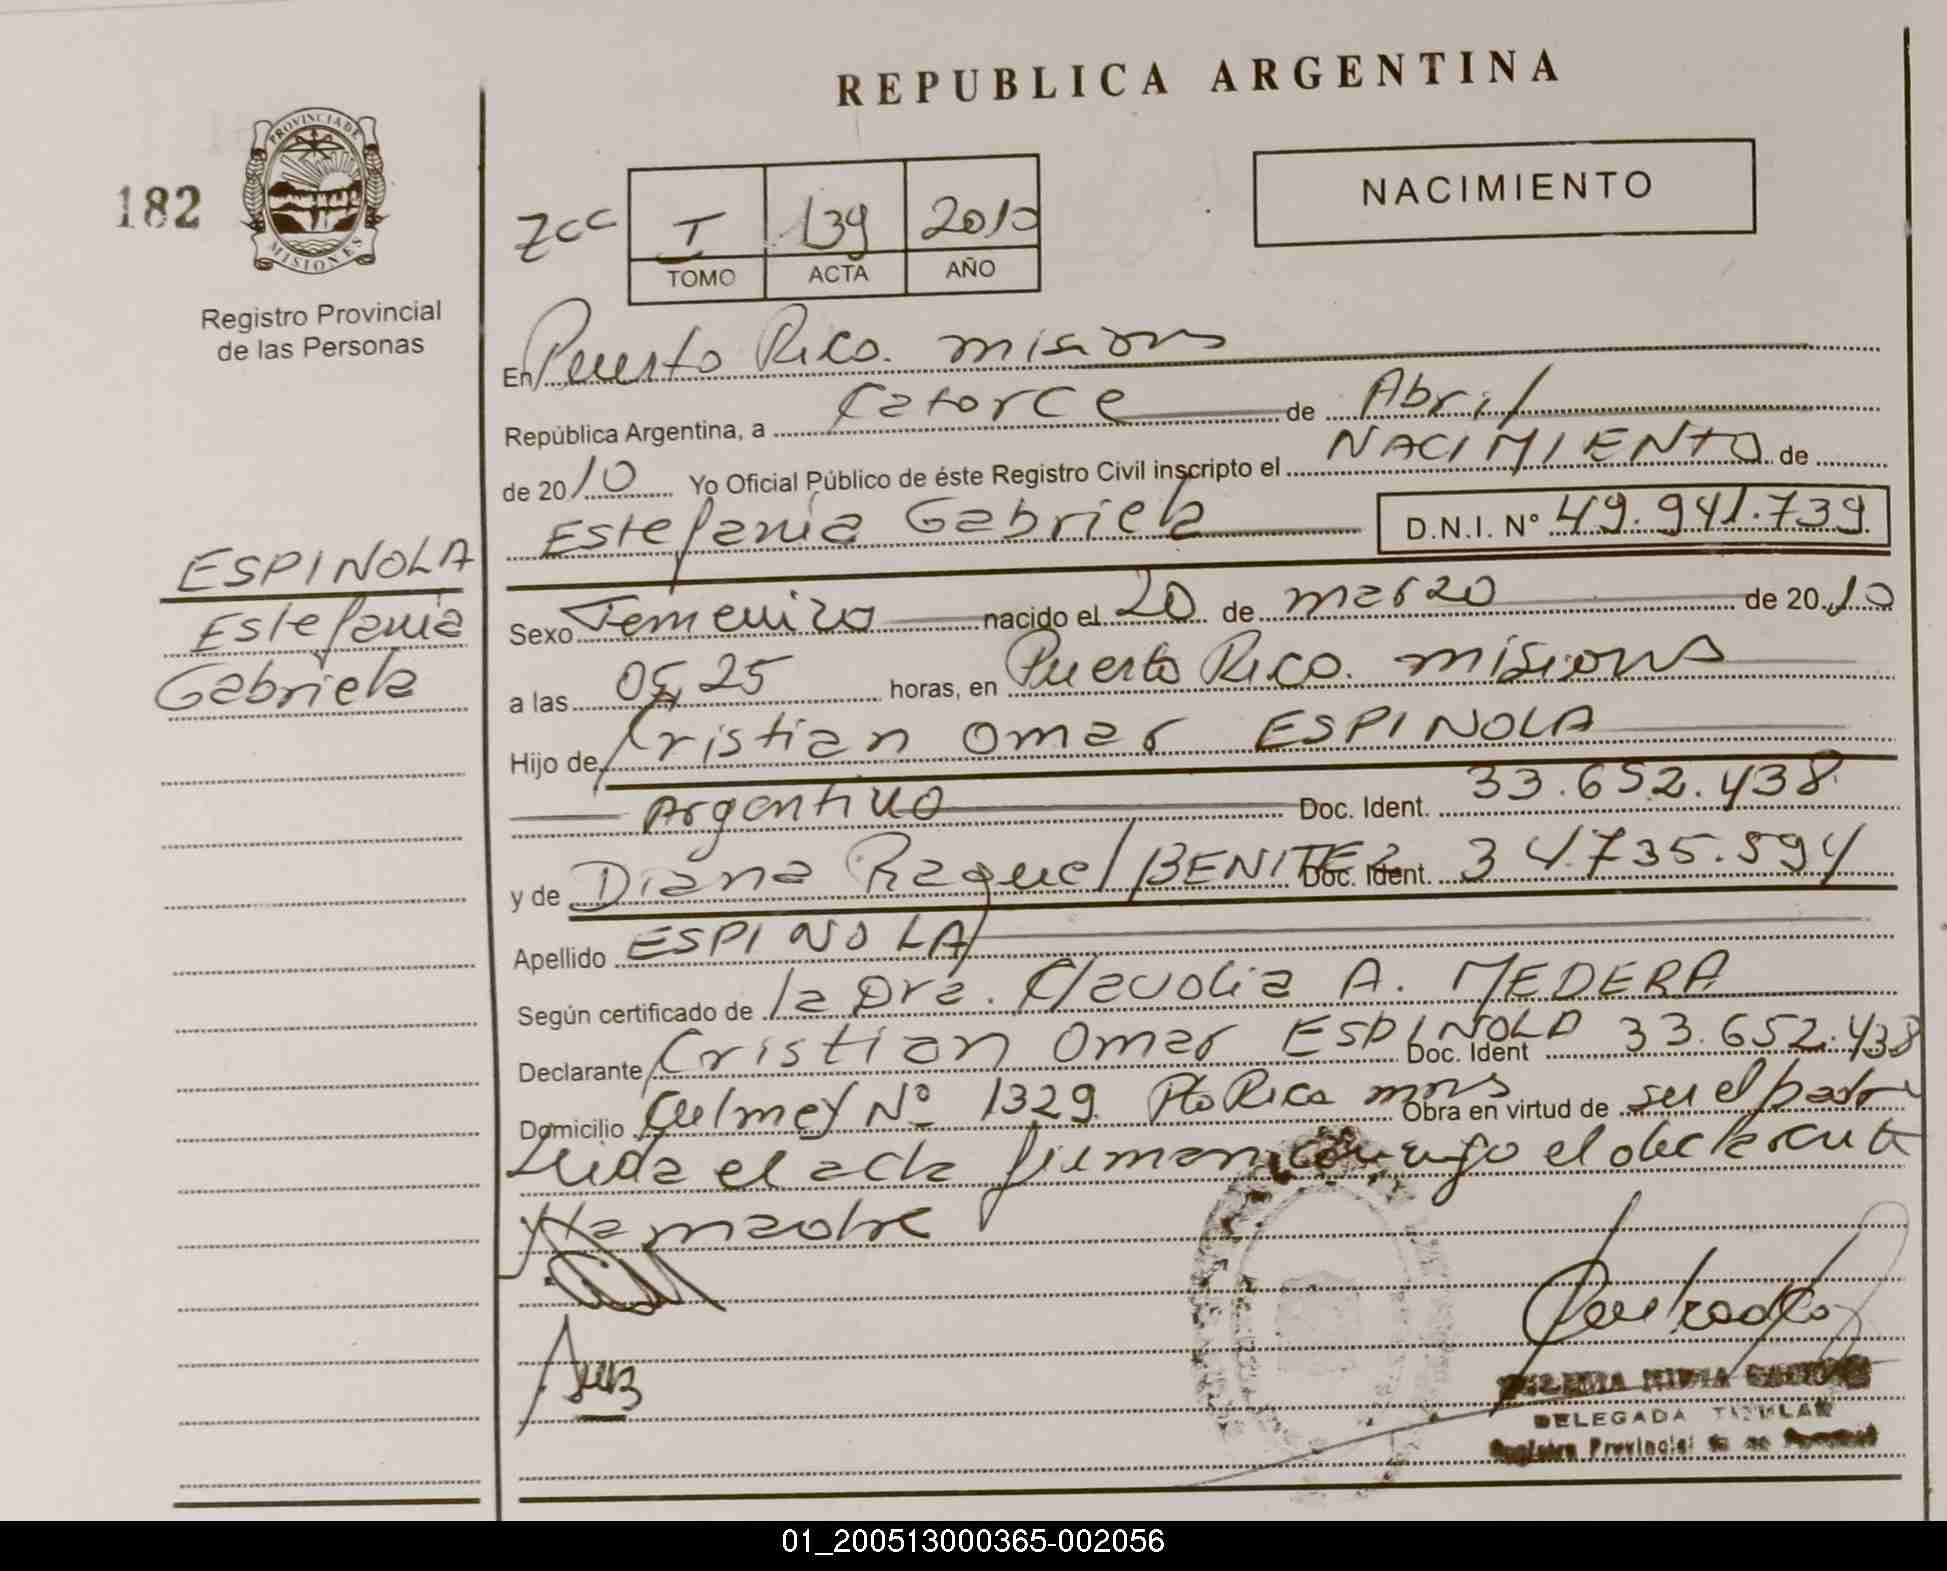 REPUBLICA ARGENTINA
182
PROVINCIA DE
MISIONES
Registro Provincial
de las Personas
NACIMIENTO
I 139 2010
TOMO ACTA AÑO
En Puerto Rico. misions
República Argentina, a catorce de Abril
de 2010 Yo Oficial Público de éste Registro Civil inscripto el NACIMIENTO de
Estefania Gabriela D.N.I. N° 49.941.739
ESPINOLA
Estefania
Gabriela
Sexo Femenino nacido el 20 de marzo de 2010
a las 05,25 horas, en Puerto Rico. misions
Hijo de Cristian Omar ESPINOLA
Argentino Doc. Ident. 33.652.438
y de Diana Raquel BENITEZ Doc. Ident. 34.735.594
Apellido ESPINOLA
Según certificado de la Dra. Claudia A. MEDERA
Declarante Cristian Omar ESPINOLA Doc. Ident 33.652.438
Domicilio Culmey N° 1329 Pto Rico mns Obra en virtud de su el padre
Leida el acta firman conmigo el declarante
y la madre
DELEGADA TITULAR
Registro Provincial de las Personas
01_200513000365-002056